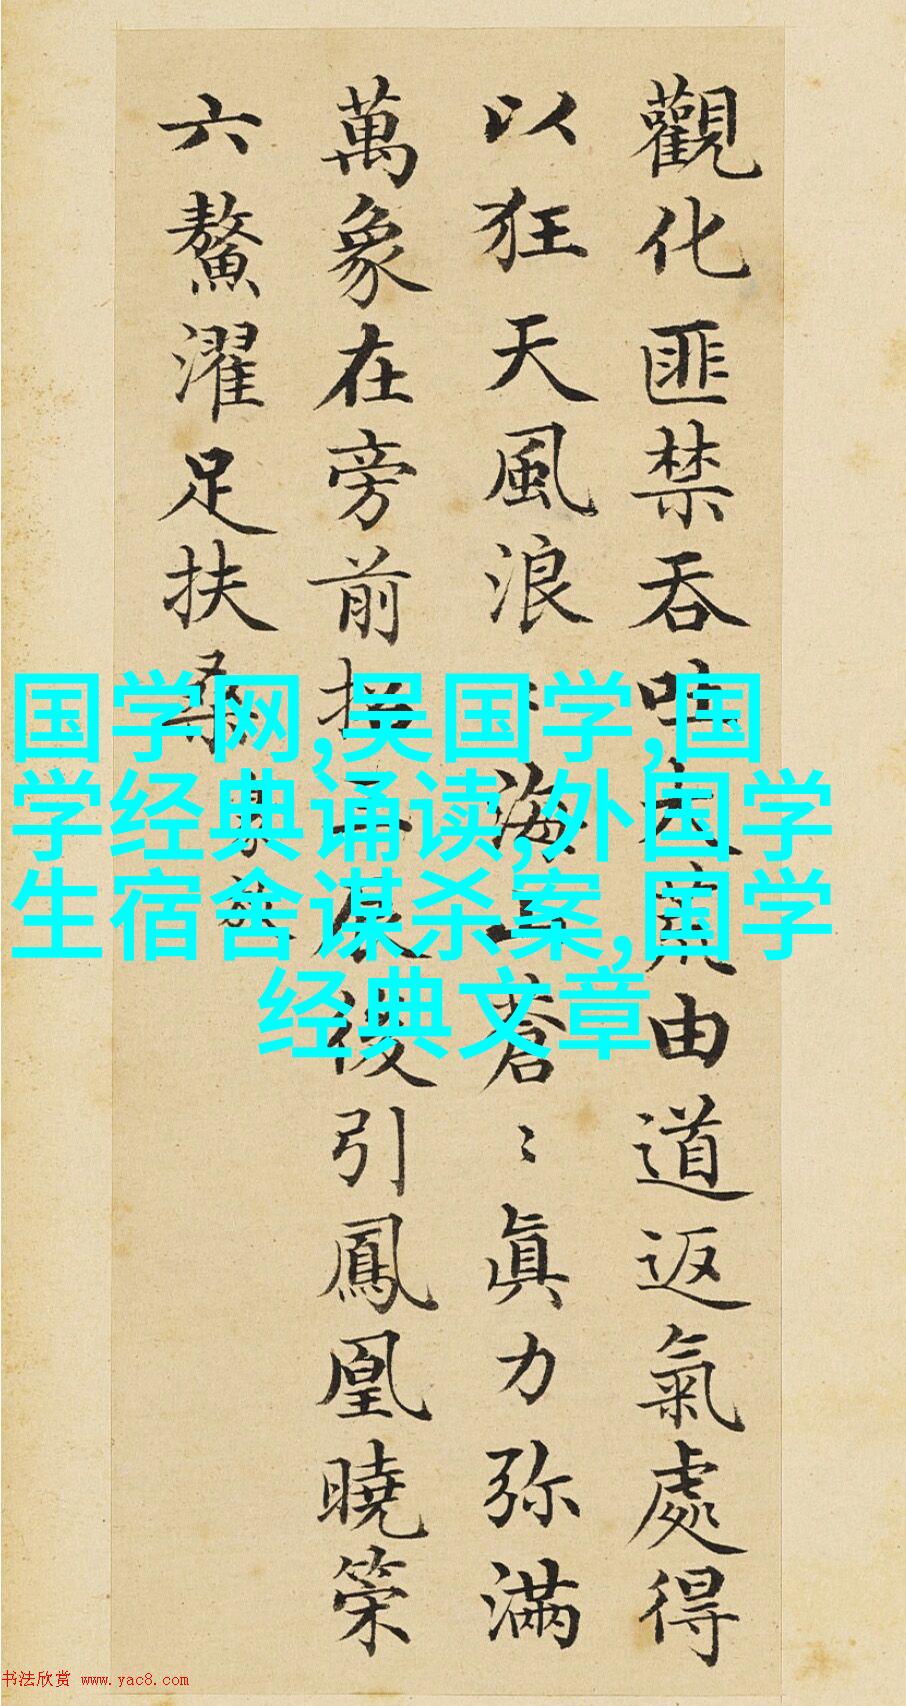 觀化匪禁吞吐大荒由道返氣處得
以狂天風浪海山蒼〻眞力弥滿
萬象在旁前招三辰後引鳳凰曉策
六鰲濯足扶桑
豪放
国学网,吴国学,国
学经典诵读,外国学
生宿舍谋杀案,国学
经典文章
书法欣赏 www.yac8.com